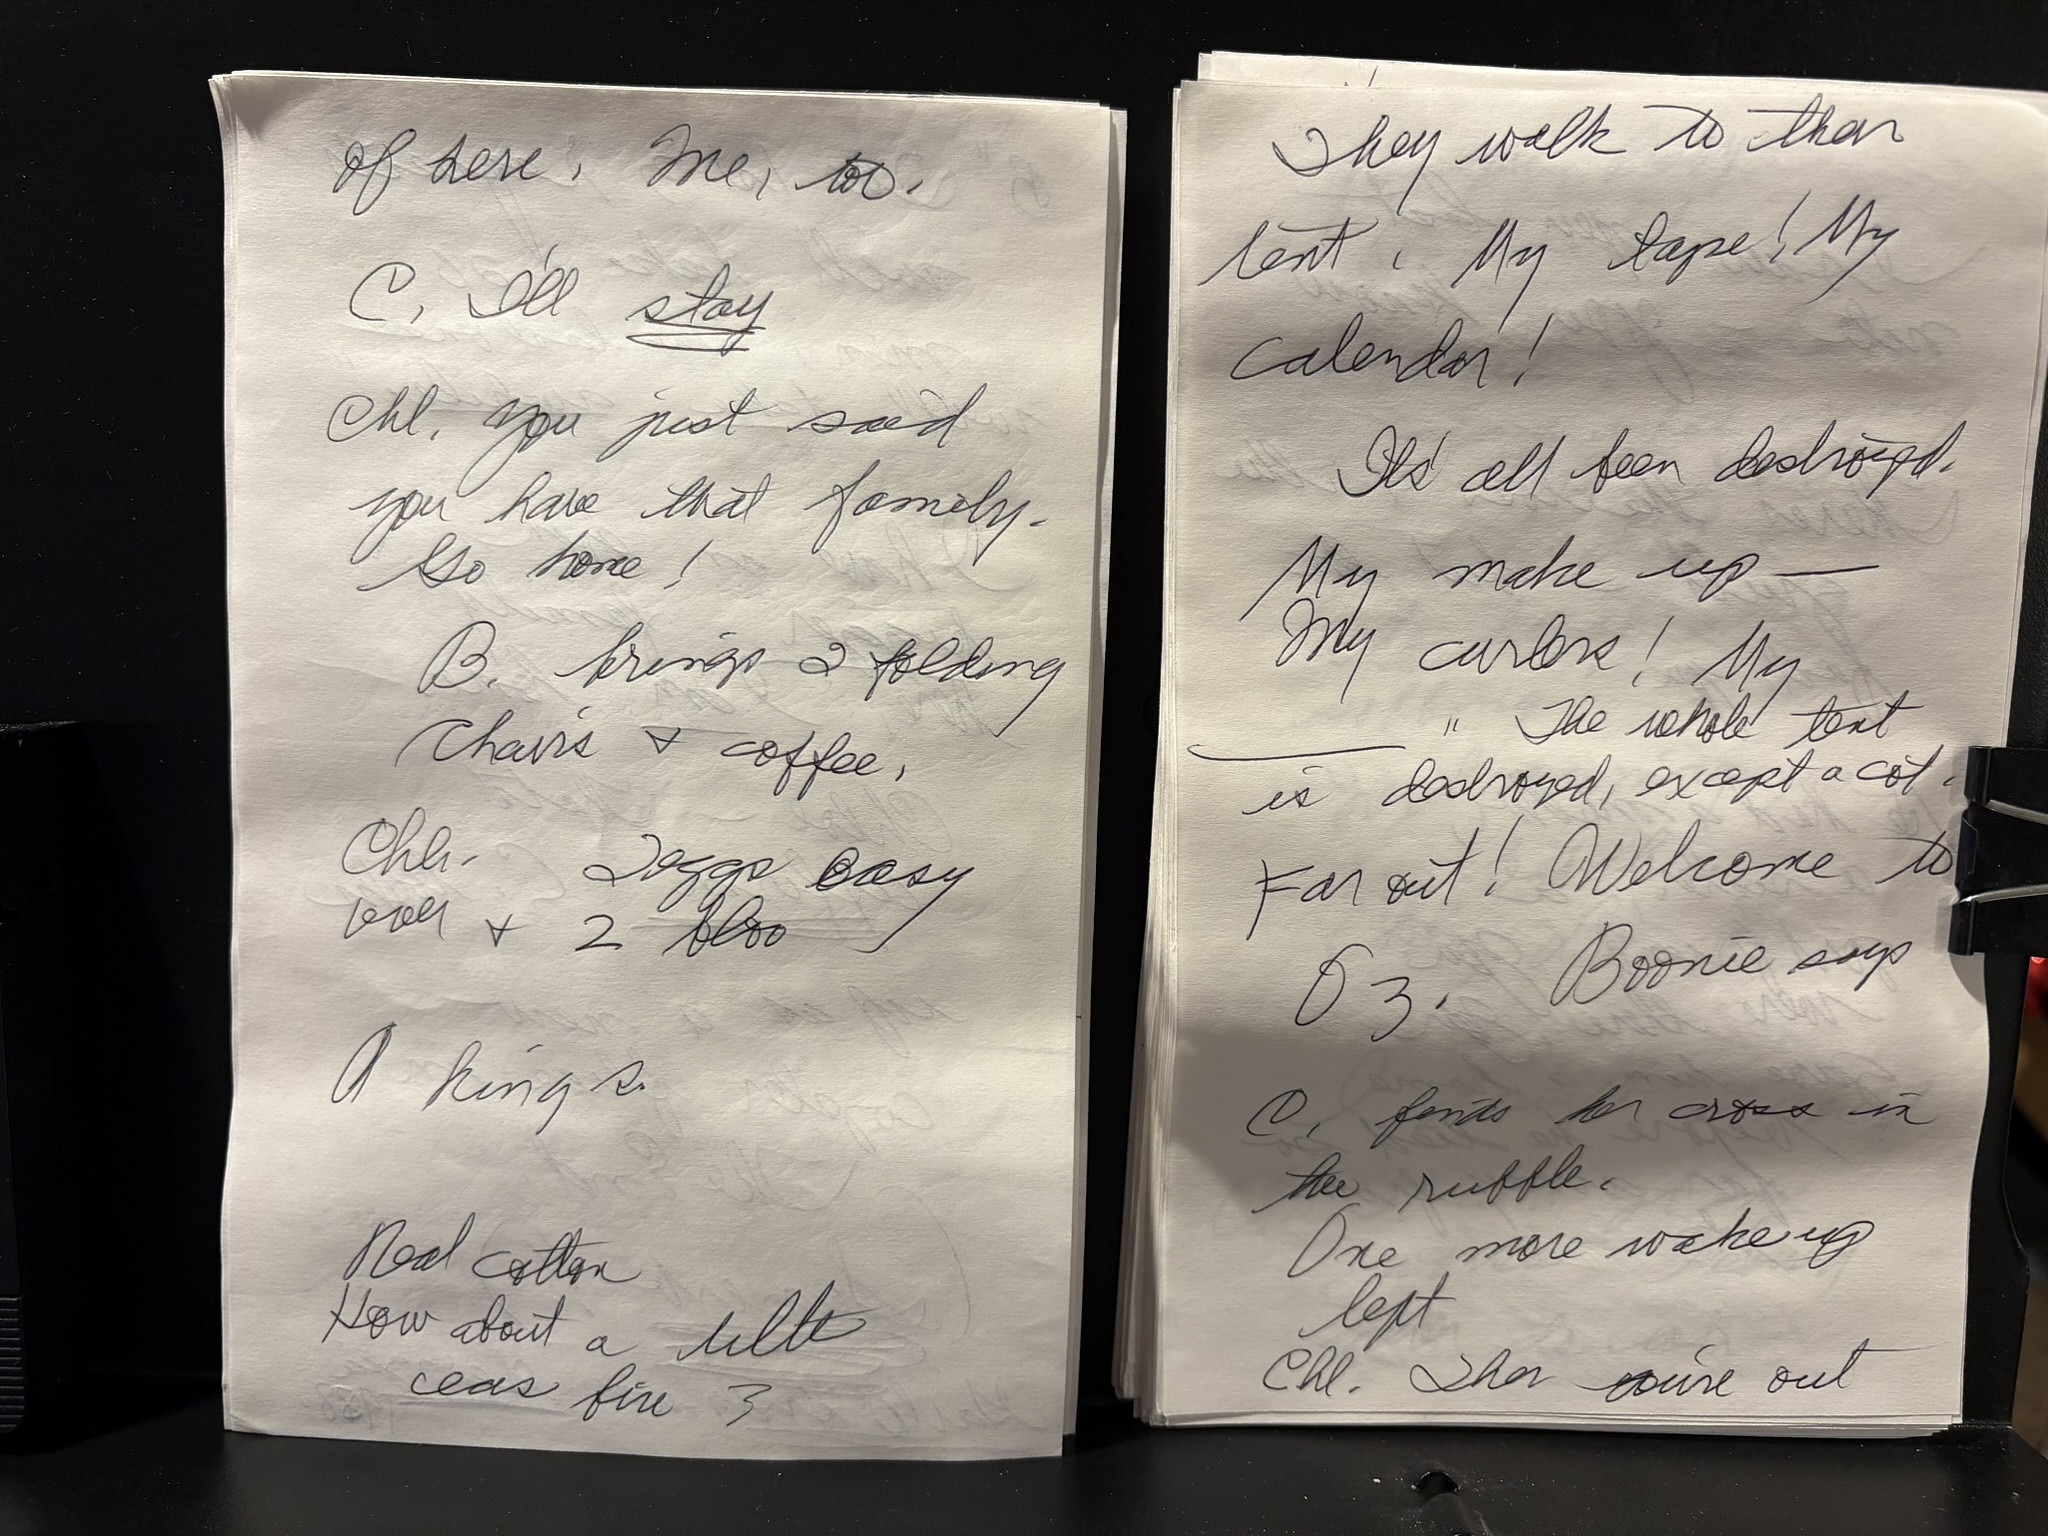 of here. Me, too.
C. I'll stay
Chl. you just said
you have that family.
Go home!
B. brings 2 folding
chairs & coffee.
Chl. 2 eggs easy
over & 2
A king s.
Real cotton
How about a little
ceas fire ?
They walk to their
tent. My tape! My
calendar!
It's all been destroyed.
My make up —
My curlers! My
____ " The whole tent
is destroyed, except a cot.
Far out! Welcome to
Oz. Boonie says
C. finds her cross in
the rubble.
One more wake up
left
Chl. Then you're out